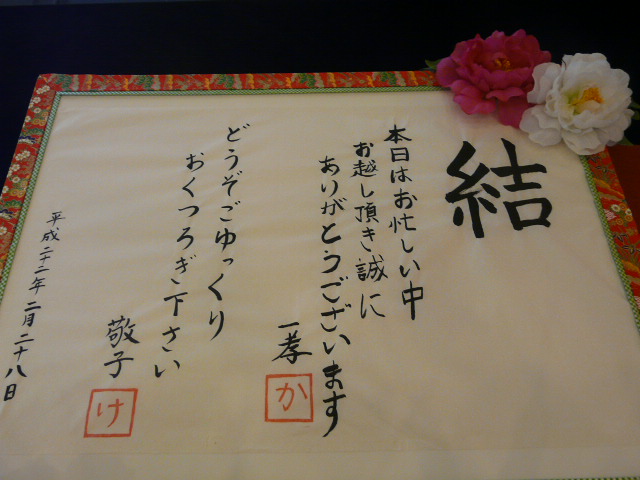 結
本日はお忙しい中
お越し頂き誠に
ありがとうございます
一孝
か
どうぞごゆっくり
おくつろぎ下さい
敬子
け
平成二十二年二月二十八日